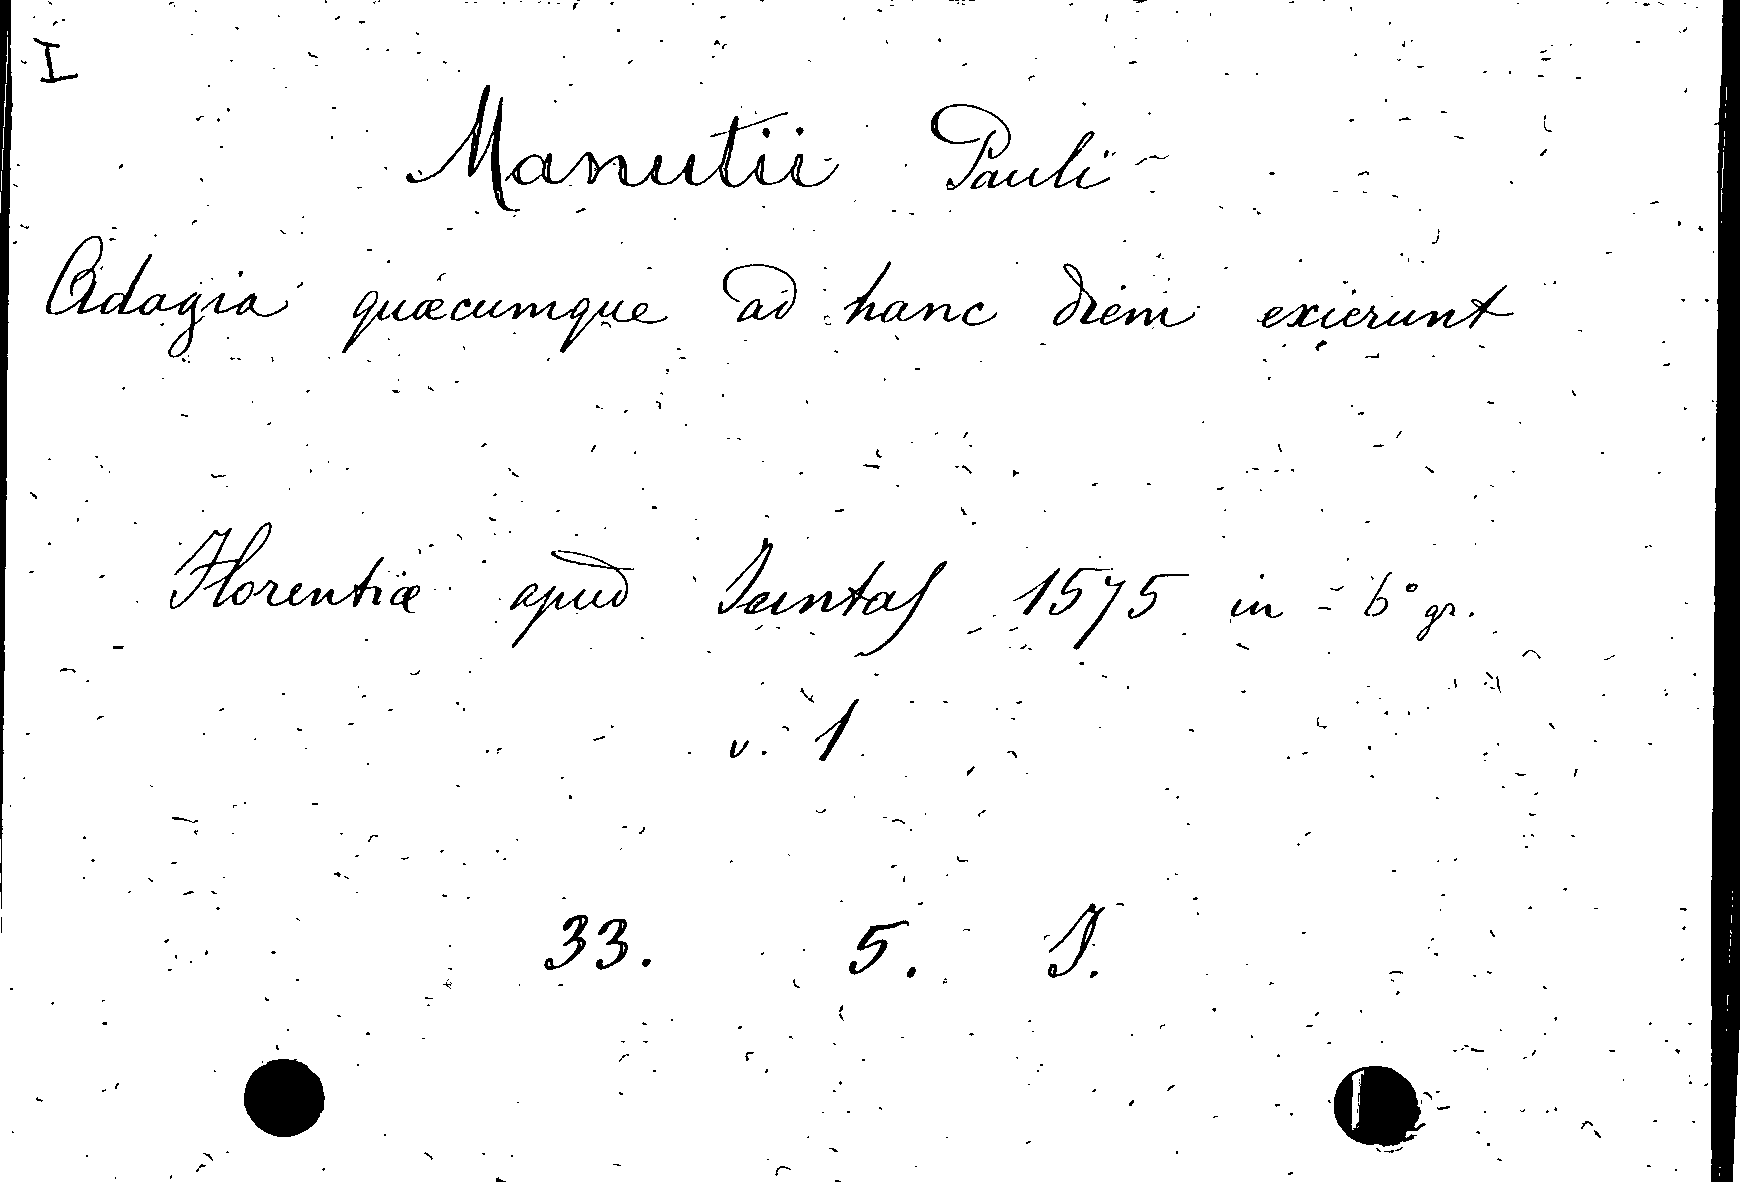 I
Manutii Pauli
Adagia quæcumque ad hanc diem exierunt
Florentiæ apud Juntas 1575 in - 6° gr.
v. 1
33. 5. J.